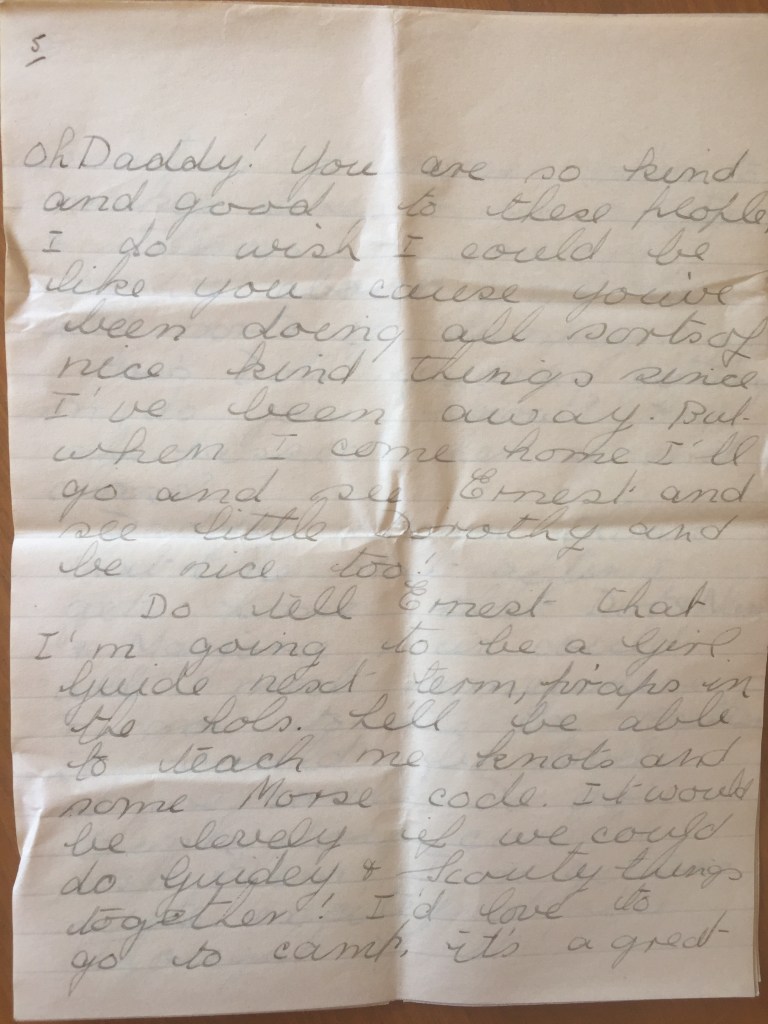 5
Oh Daddy! You are so kind
and good to these people,
I do wish I could be
like you cause you've
been doing all sorts of
nice kind things since
I've been away. But
when I come home I'll
go and see Ernest and
see little Dorothy and
be nice too!
Do tell Ernest that
I'm going to be a Girl
Guide next term, p'raps in
the hols. he'll be able
to teach me knots and
some Morse code. It would
be lovely if we could
do Guidey & Scouty things
together! I'd love to
go to camp, it's a great